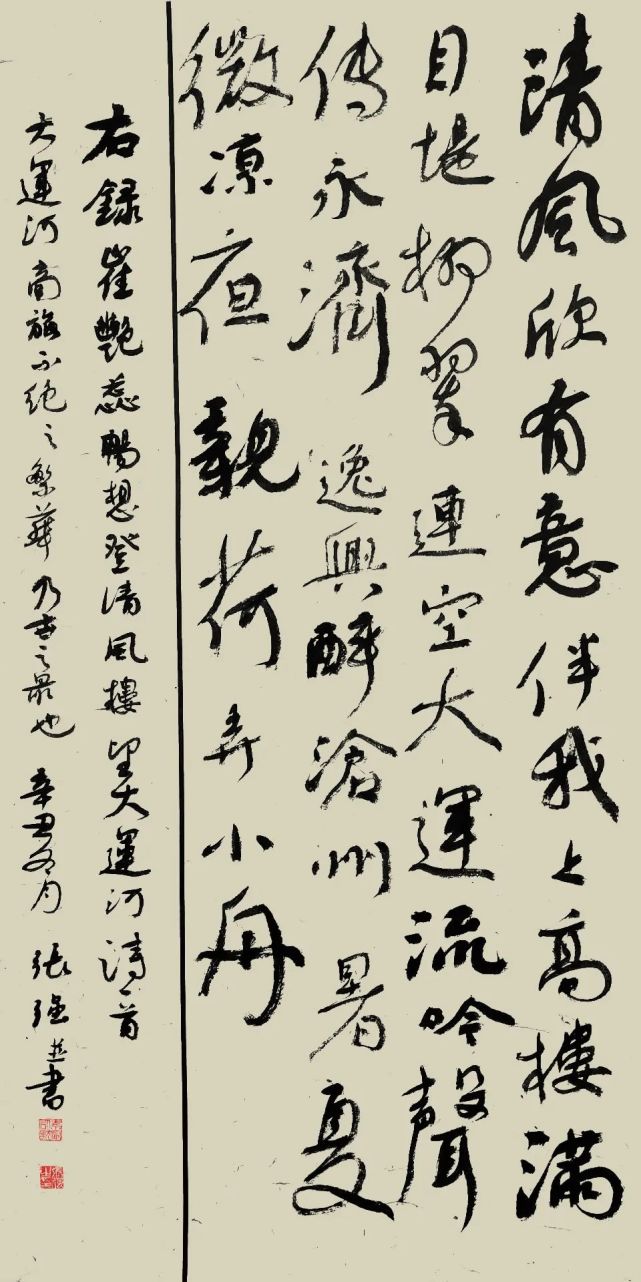 清風欣有意伴我上高樓滿
目堤柳翠連空大運流吟聲
傳永濟逸興醉滄州暑夏
微凉夜親荷弄小舟
右録崔艷蕊暢想登清風樓望大運河詩一首
大運河商旅不絶之繁華乃世之最也辛丑冬月張强並書